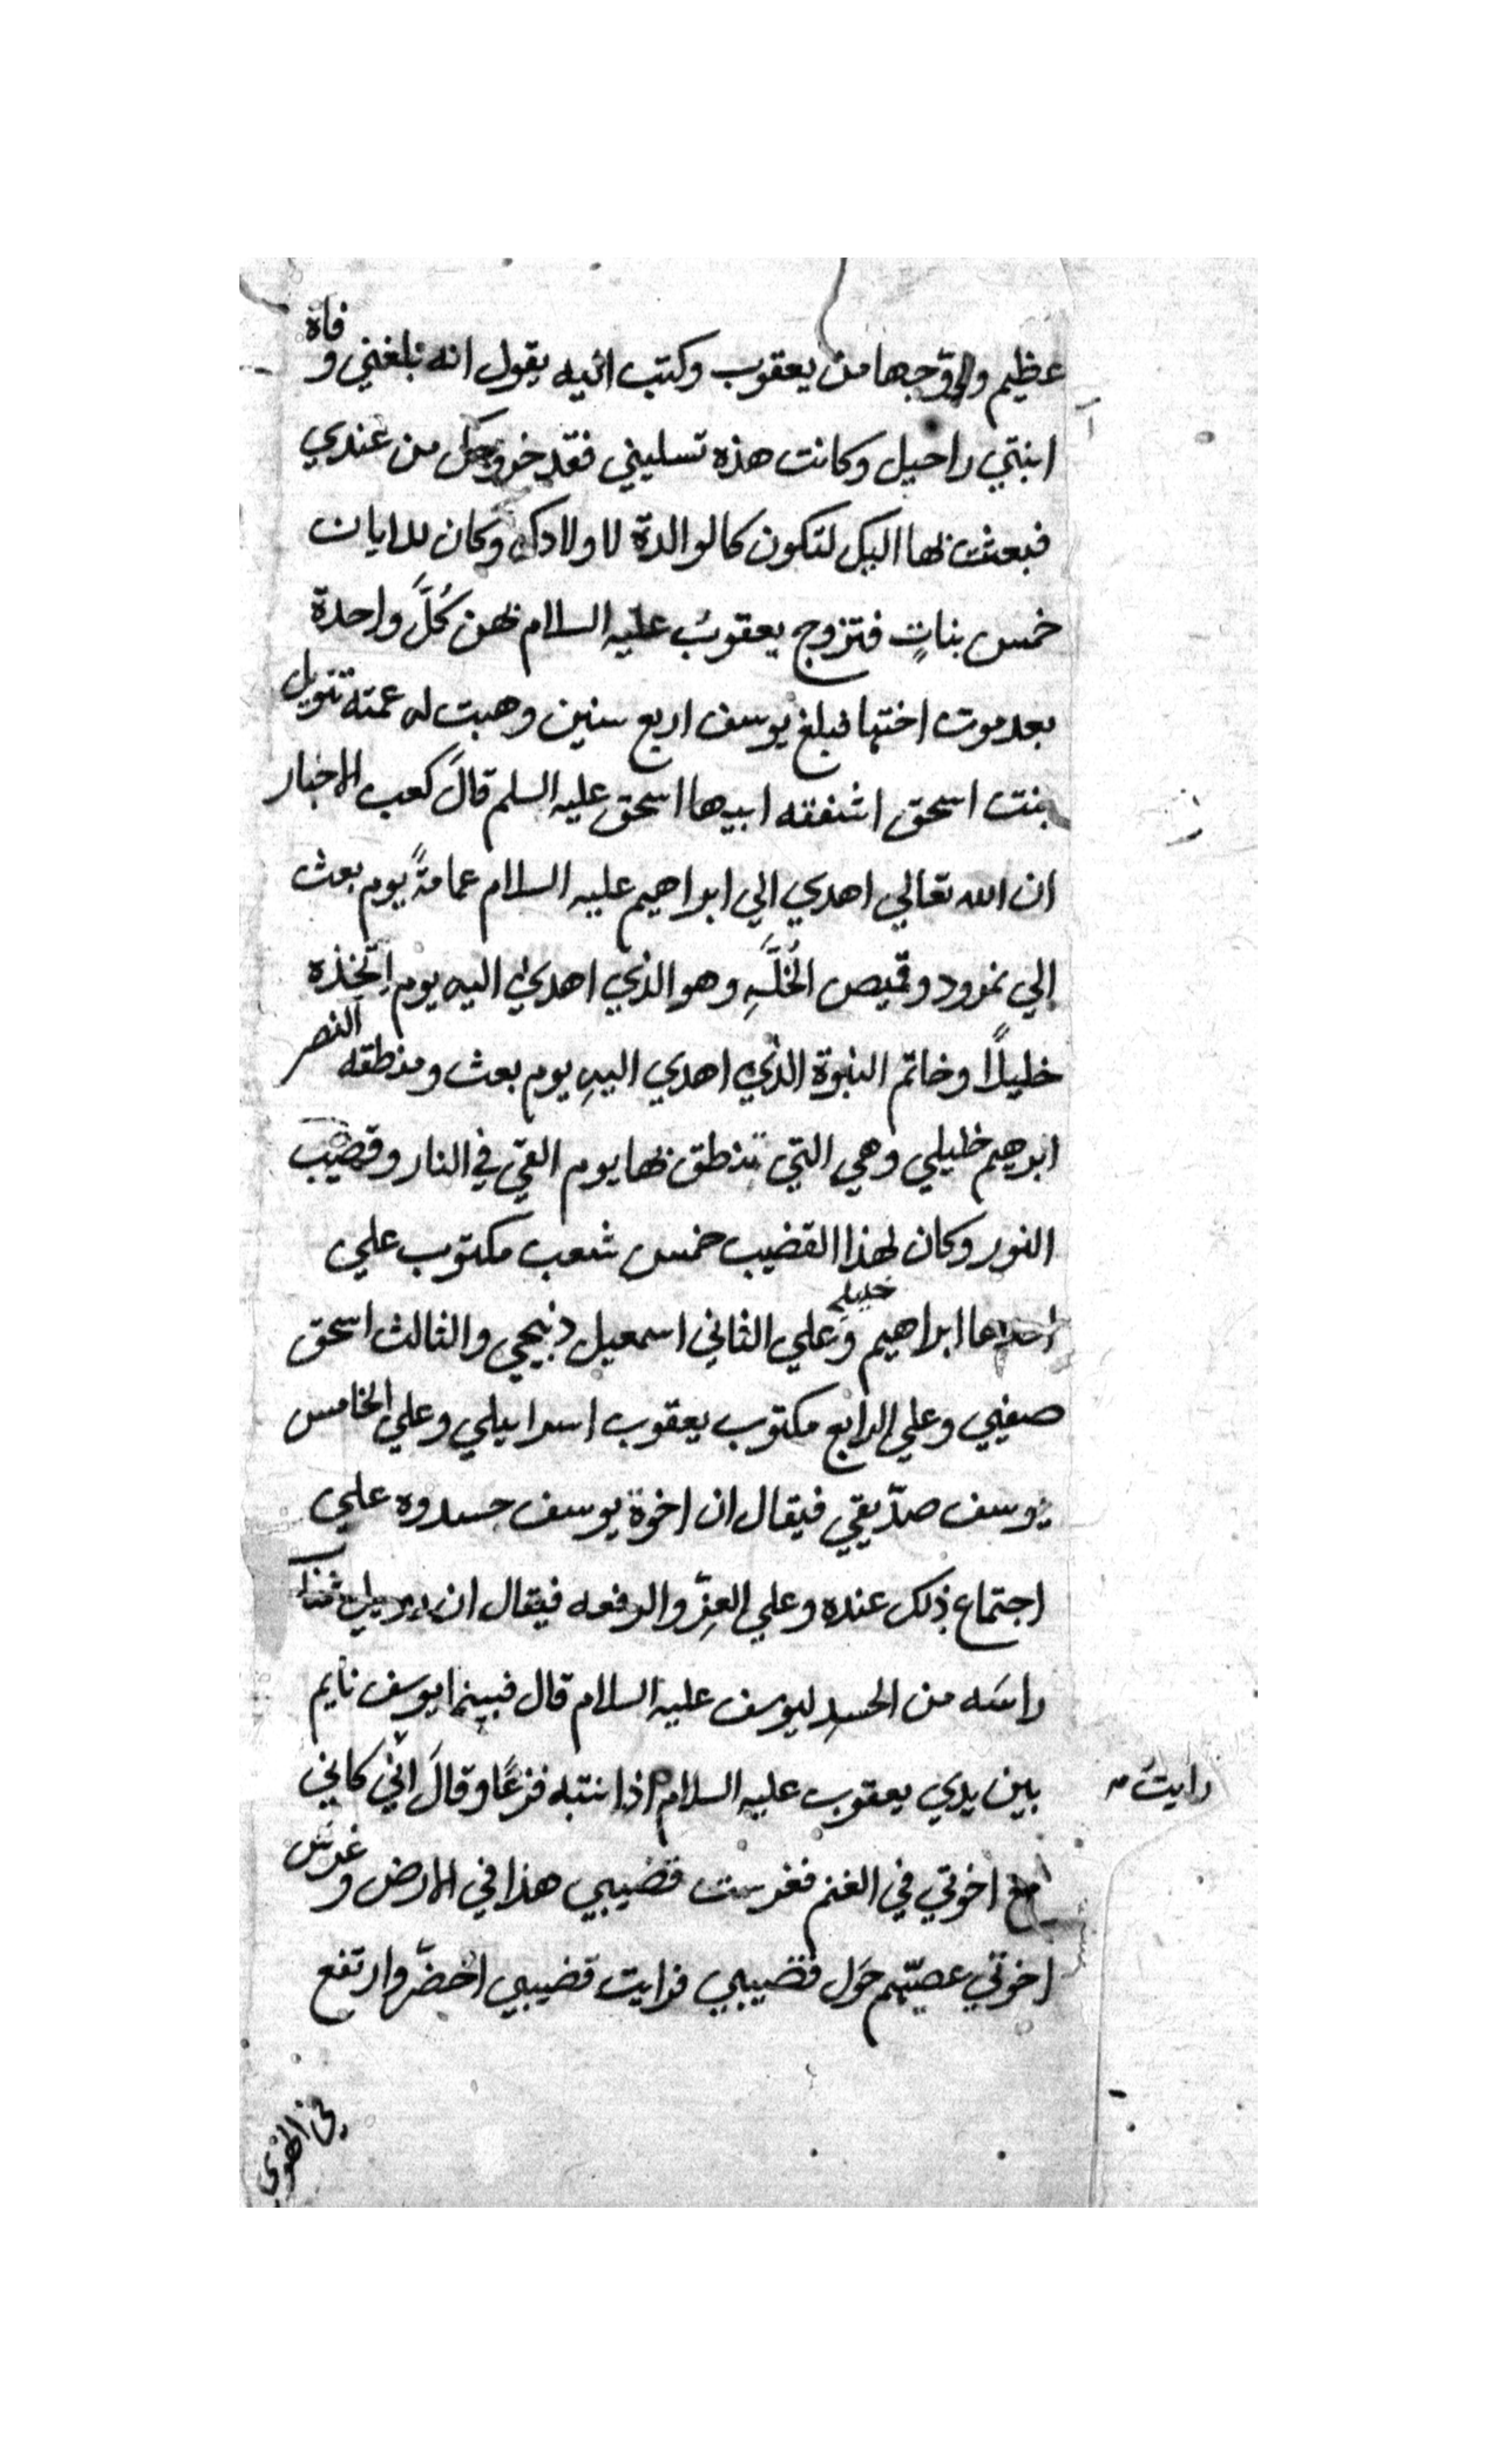 عظيم وزوّجها من يعقوب وكتب اليه يقول انه بلغني وفاة
ابنتي راحيل وكانت هذه تسليني فقد خروجك من عندي
فبعثت بها اليك لتكون كالوالدة لاولادك وكان للايان
خمس بناتٍ فتزوج يعقوبُ عليه السلام بهن كُلَّ واحدة
بعد موت اختها فبلغ يوسف اربع سنين وهبت له عمته تنويل
بنت اسحق اشنفقه ابيها اسحق عليه السلم قالَ كعب الاخبار
ان الله تعالي اهدي الي ابراهيم عليه السلام عمامةً يوم بعث
إلي نمرود وقميص الخُلَّهِ وهو الذي اهدي اليه يوم اتّخذه
خليلًا وخاتم النبوة الذي اهدي اليهِ يوم بعث ومنطقه النصر
ابرهيم خليلي وهي التي تنطق بها يوم القي في النار وقضيب
النور وكان لهذا القضيب خمس شعب مكتوب علي
احداها ابراهيم خليلي وعلي الثاني اسمعيل ذبيحي والثالث اسحق
صفيي وعلي الرابع مكتوب يعقوب اسراييلي وعلي الخامس
يوسف صدّيقي فيقال ان اخوة يوسف حسدوه علي
اجتماع ذلك عنده وعلي العِزّ والرفعه فيقال ان
راسَه من الحسدِ ليوسف عليه السلام قال فبينما يوسف نايم
بين يدي يعقوب عليه السلام اذ انتبه فزعًا وقالَ انّي كاني
رايتُ
مع اخوتي في الغنم فغرست قضيبي هذا في الارض وغرس
اخوتي عصيّهم حَول قضيبي فرايت قضيبي اخضرّ وارتفع
في الهوي